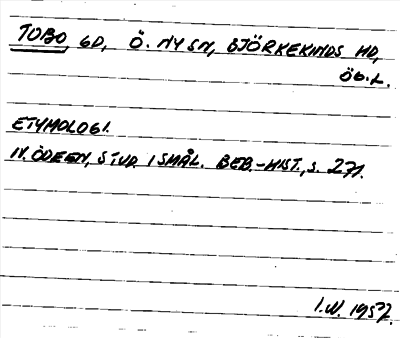 TUBO, GD, Ö. NY SN, BJÖRKEKINDS HD,
ÖG.L.
ETYMOLOGI.
N. ÖDEEN, STUD. I SMÅL. BEB.-HIST., S. 271.
I.W. 1957.